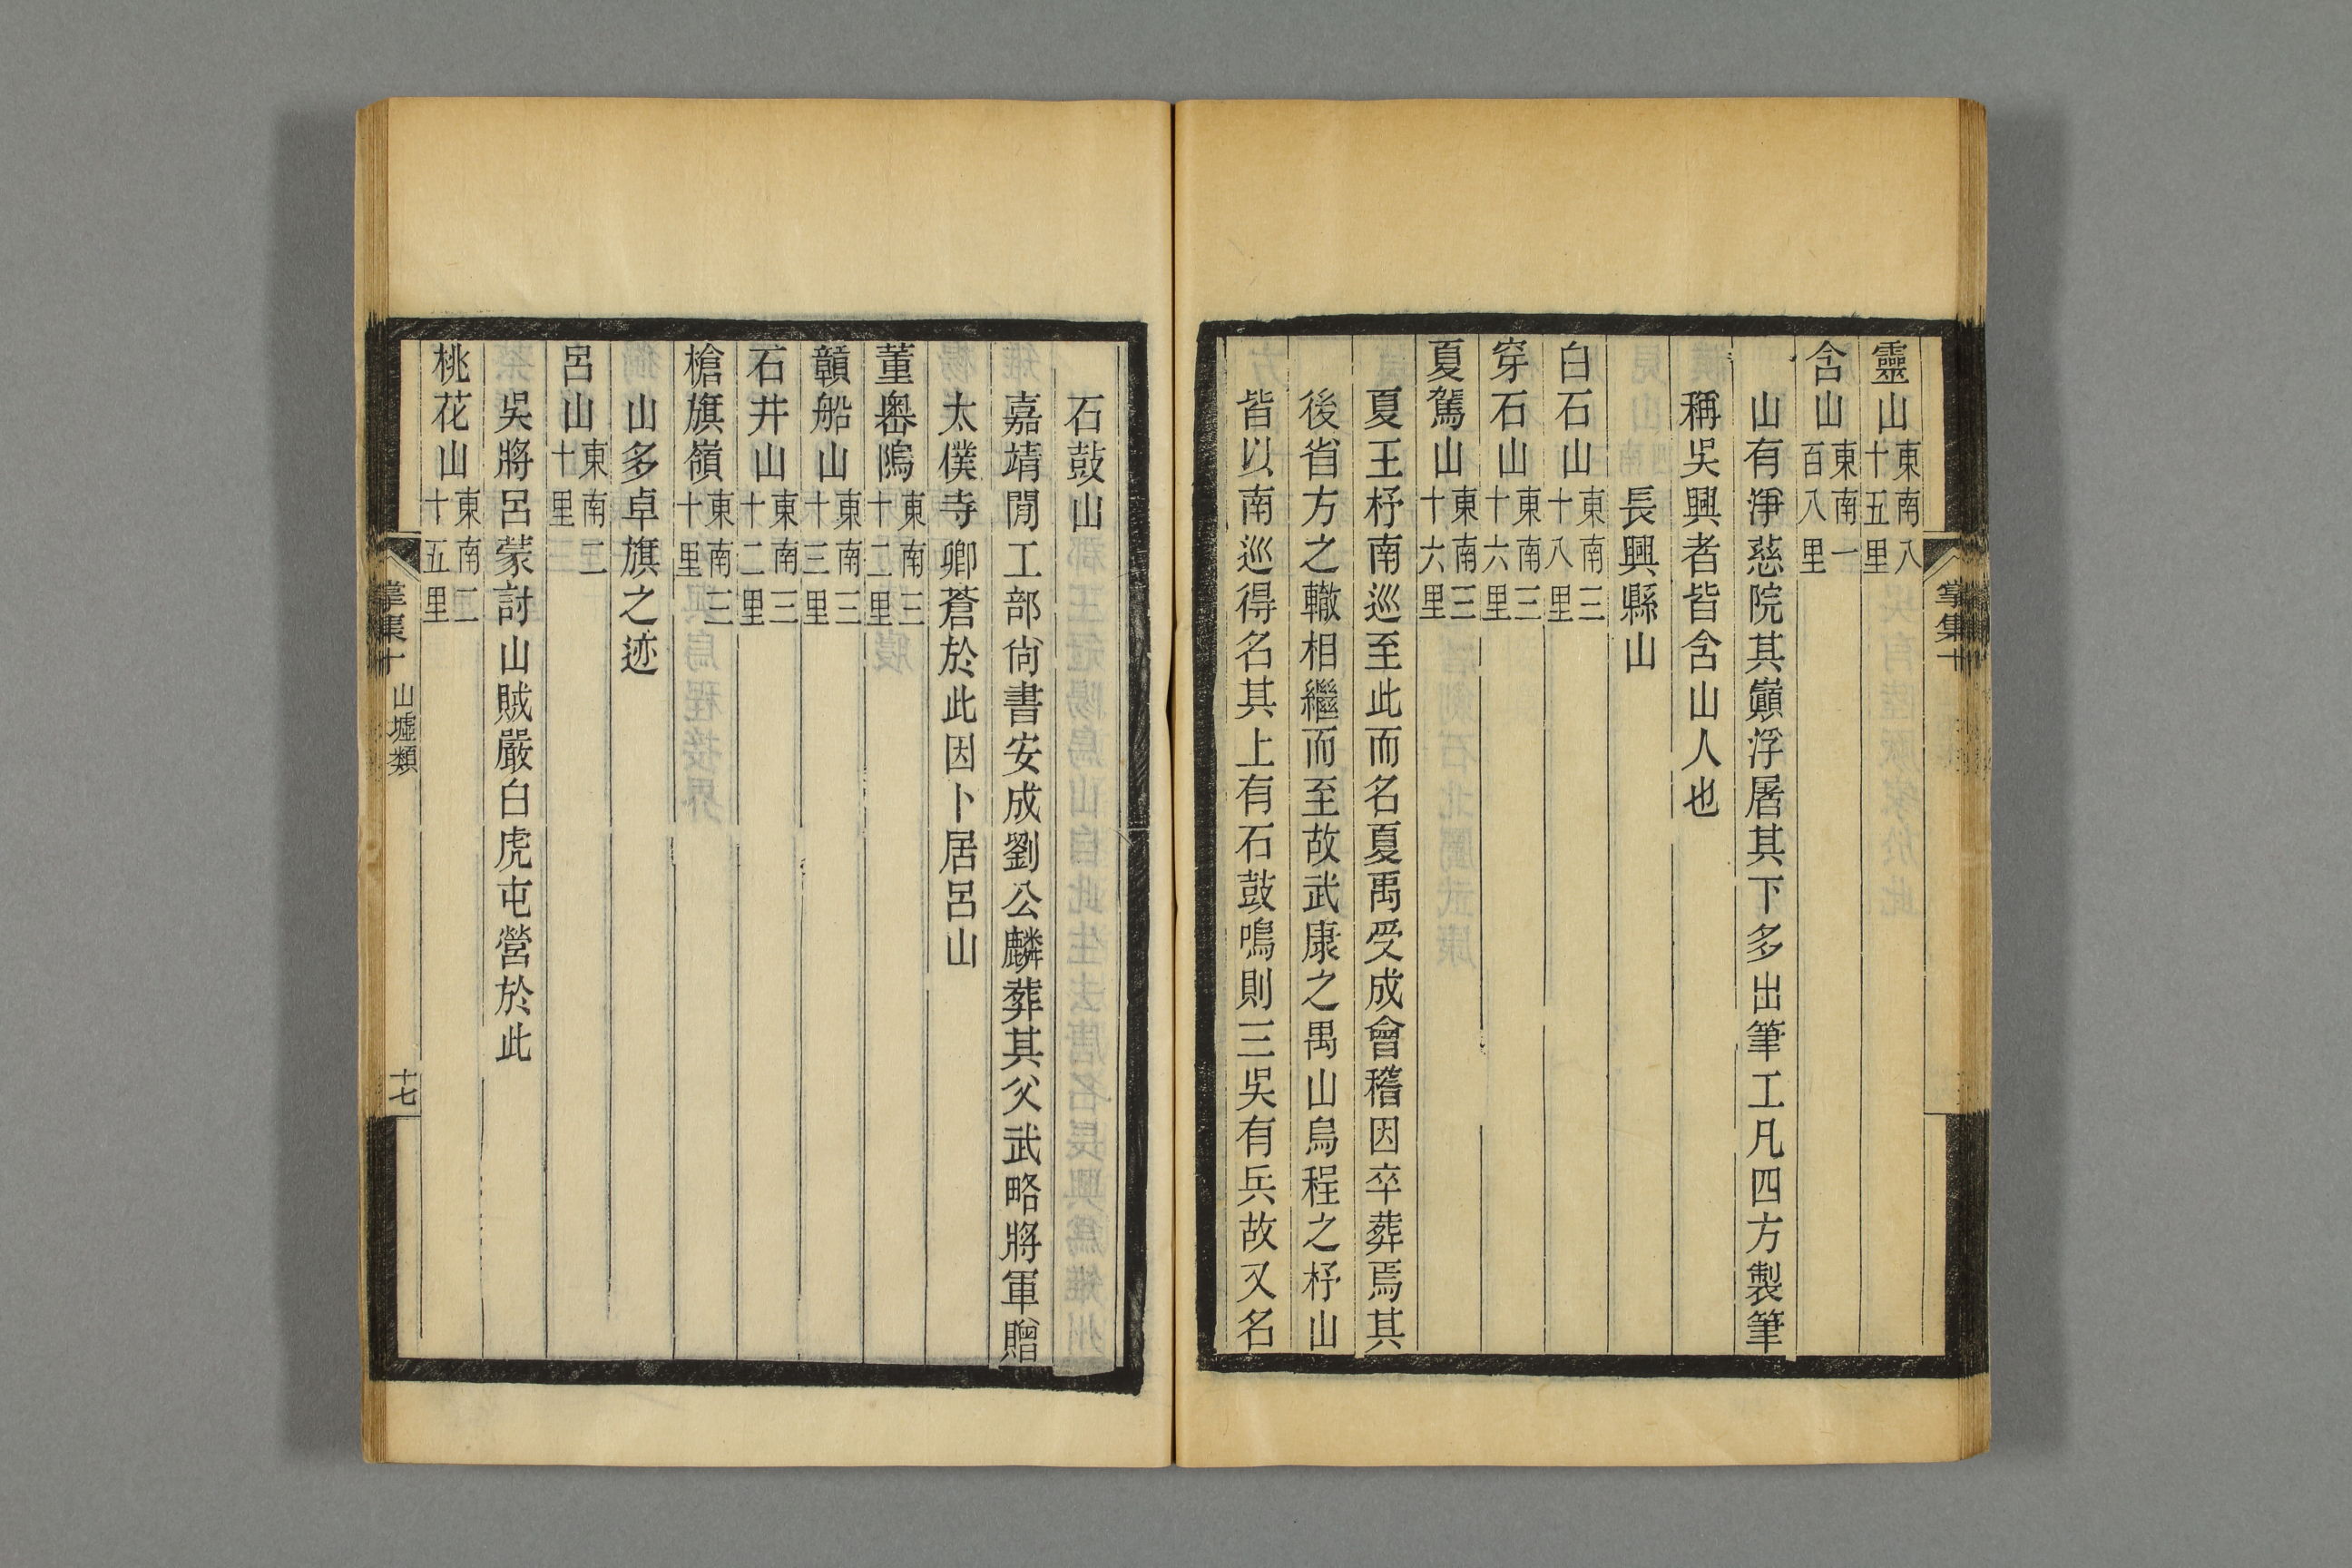 靈山東南八十五里
含山東南一百八里
山有淨慈院其巓浮屠其下多出筆工凡四方製筆
稱吳興者皆含山人也
長興縣山
白石山東南三十八里
穿石山東南三十六里
夏駕山東南三十六里
夏王杼南巡至此而名夏禹受成會稽因卒葬焉其
後省方之轍相繼而至故武康之禺山烏程之杼山
皆以南巡得名其上有石鼓鳴則三吳有兵故又名
石鼓山
嘉靖閒工部尙書安成劉公麟葬其父武略將軍贈
太僕寺卿蒼於此因卜居呂山
董嶴隖東南三十二里
贑船山東南三十三里
石井山東南三十二里
槍旗嶺東南三十里
山多卓旗之迹
呂山東南二十里
吳將呂蒙討山賊嚴白虎屯營於此
桃花山東南二十五里
掌集十
山墟類
十七
掌集十